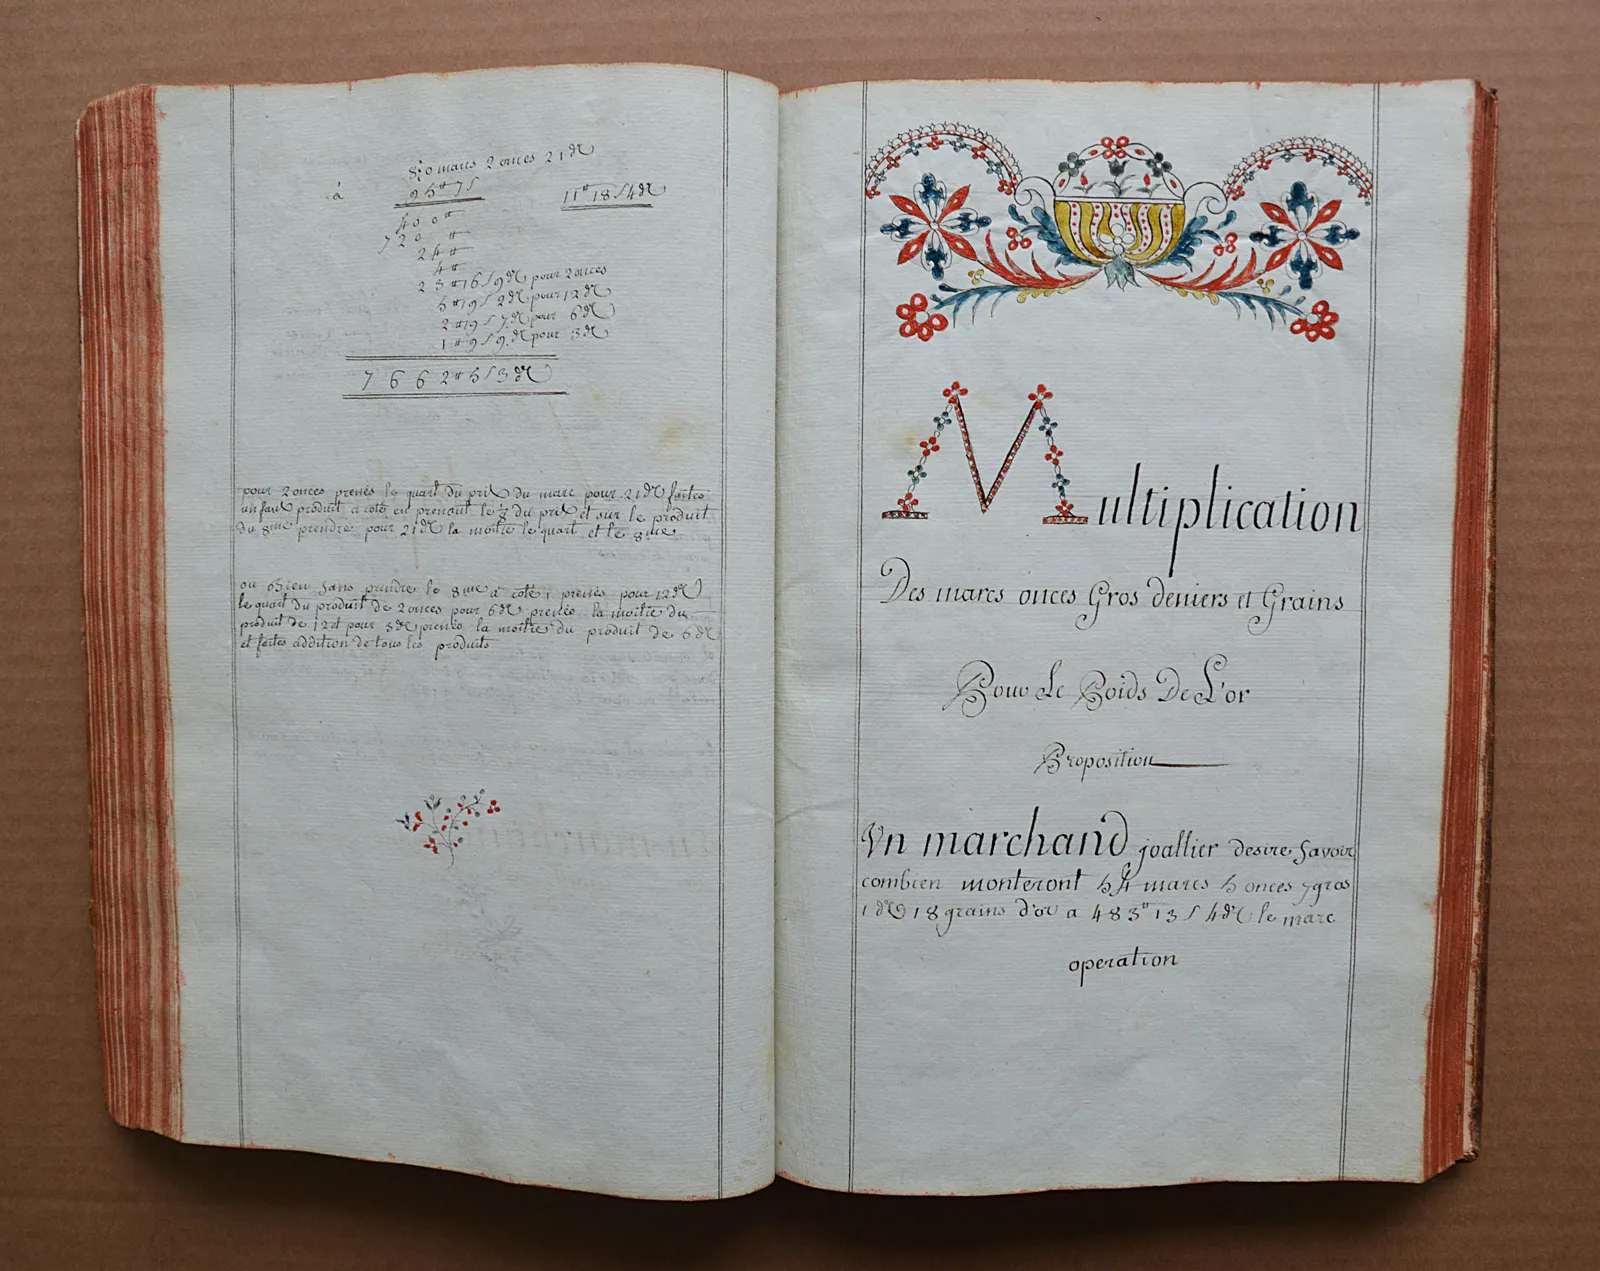 80 marcs 2 onces 21 d
à 95# 7s
11# 18s 4d
400#
720 #
24#
4#
23#16s9d pour 2 onces
5#19s2d pour 12d
2#19s7d pour 6d
1#9s9d pour 3d
7662#5s3d
pour 2 onces prenés le quart du prix du marc pour 21d faites
un faux produit a coté en prenant le ⅛ du prix et sur le produit
du 8me prendre pour 21d la moitie le quart et le 8me
ou bien sans prendre le 8me a coté, prenés pour 12d
le quart du produit de 2 onces pour 6d prenés la moitie du
produit de 12d pour 3d prenés la moitie du produit de 6d
et faites addition de tous les produits
Multiplication
Des marcs onces Gros deniers et Grains
Pour Le Poids De L'or
Proposition
Un marchand joallier desire savoir
combien monteront 54 marcs 5 onces 7 gros
1d 18 grains d'or a 483# 13s 4d le marc
operation